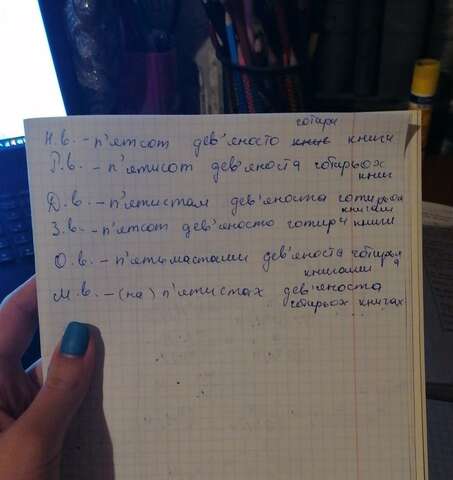 чотири
Н.в. – п'ятсот дев'яносто книги
Р.в. – п'ятисот дев'яноста чотирьох
книг
Д.в. – п'ятистам дев'яноста чотирьом
книгам
З.в. – п'ятсот дев'яносто чотири книги
О.в. – п'ятьмастами дев'яноста чотирья
книгами
М.в. – (на) п'ятистах дев'яноста
чотирьох книгах